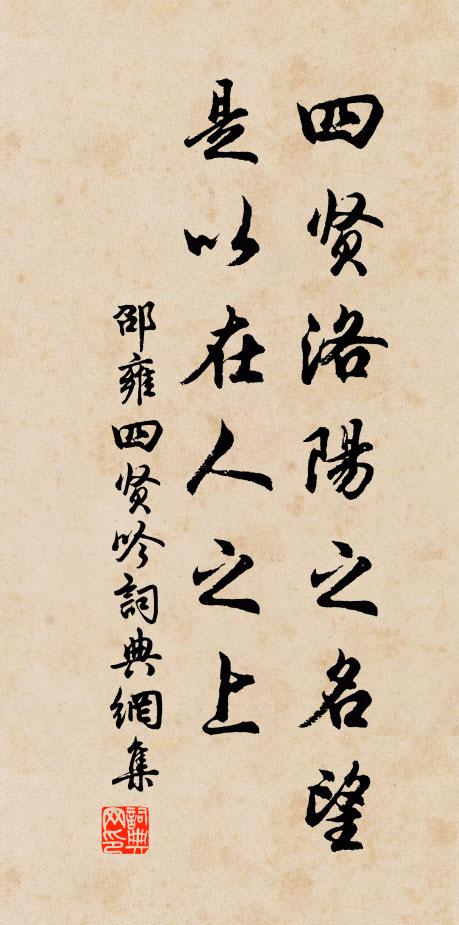 四贤洛陽之名望
是以在人之上
邵雍四贤吟詞典網集
詞典网印